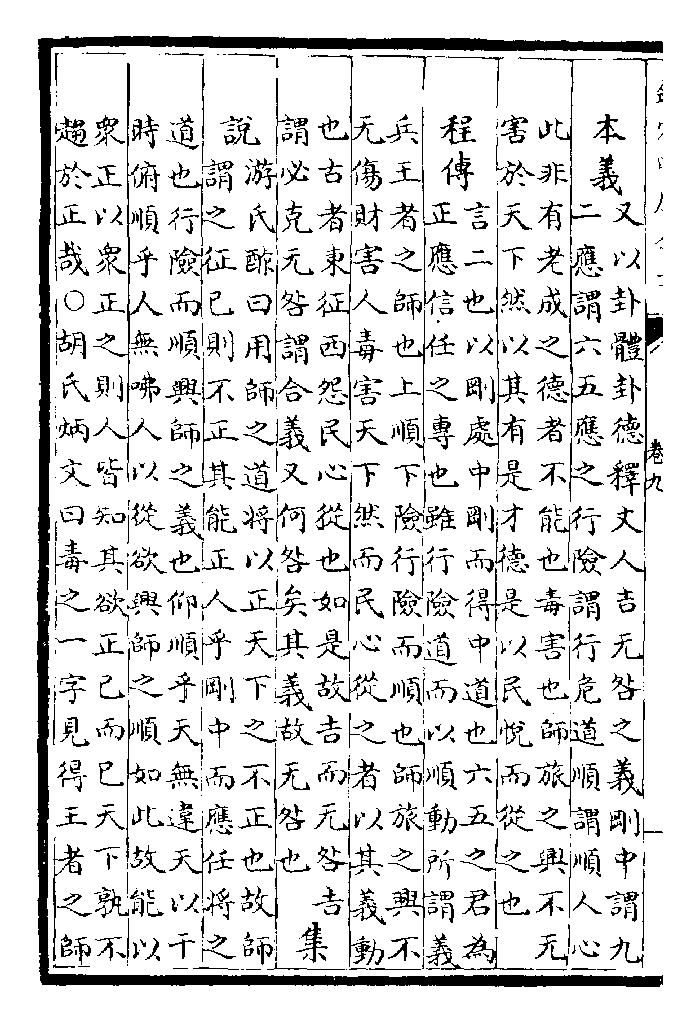 卷九
本義
又以卦體卦德釋丈人吉无咎之義剛中謂九
二應謂六五應之行險謂行危道順謂順人心
此非有老成之德者不能也毒害也師旅之興不无
害於天下然以其有是才德是以民悅而從之也
程傳
言二也以剛處中剛而得中道也六五之君為
正應信任之專也雖行險道而以順動所謂義
兵王者之師也上順下險行險而順也師旅之興不
无傷財害人毒害天下然而民心從之者以其義動
也古者東征西怨民心從也如是故吉而无咎吉
謂必克无咎謂合義又何咎矣其義故无咎也
集
說
游氏酢曰用師之道將以正天下之不正也故師
謂之征已則不正其能正人乎剛中而應任將之
道也行險而順興師之義也仰順乎天無違天以干
時俯順乎人無咈人以從欲興師之順如此故能以
衆正以衆正之則人皆知其欲正己而已天下孰不
趨於正哉○胡氏炳文曰毒之一字見得王者之師